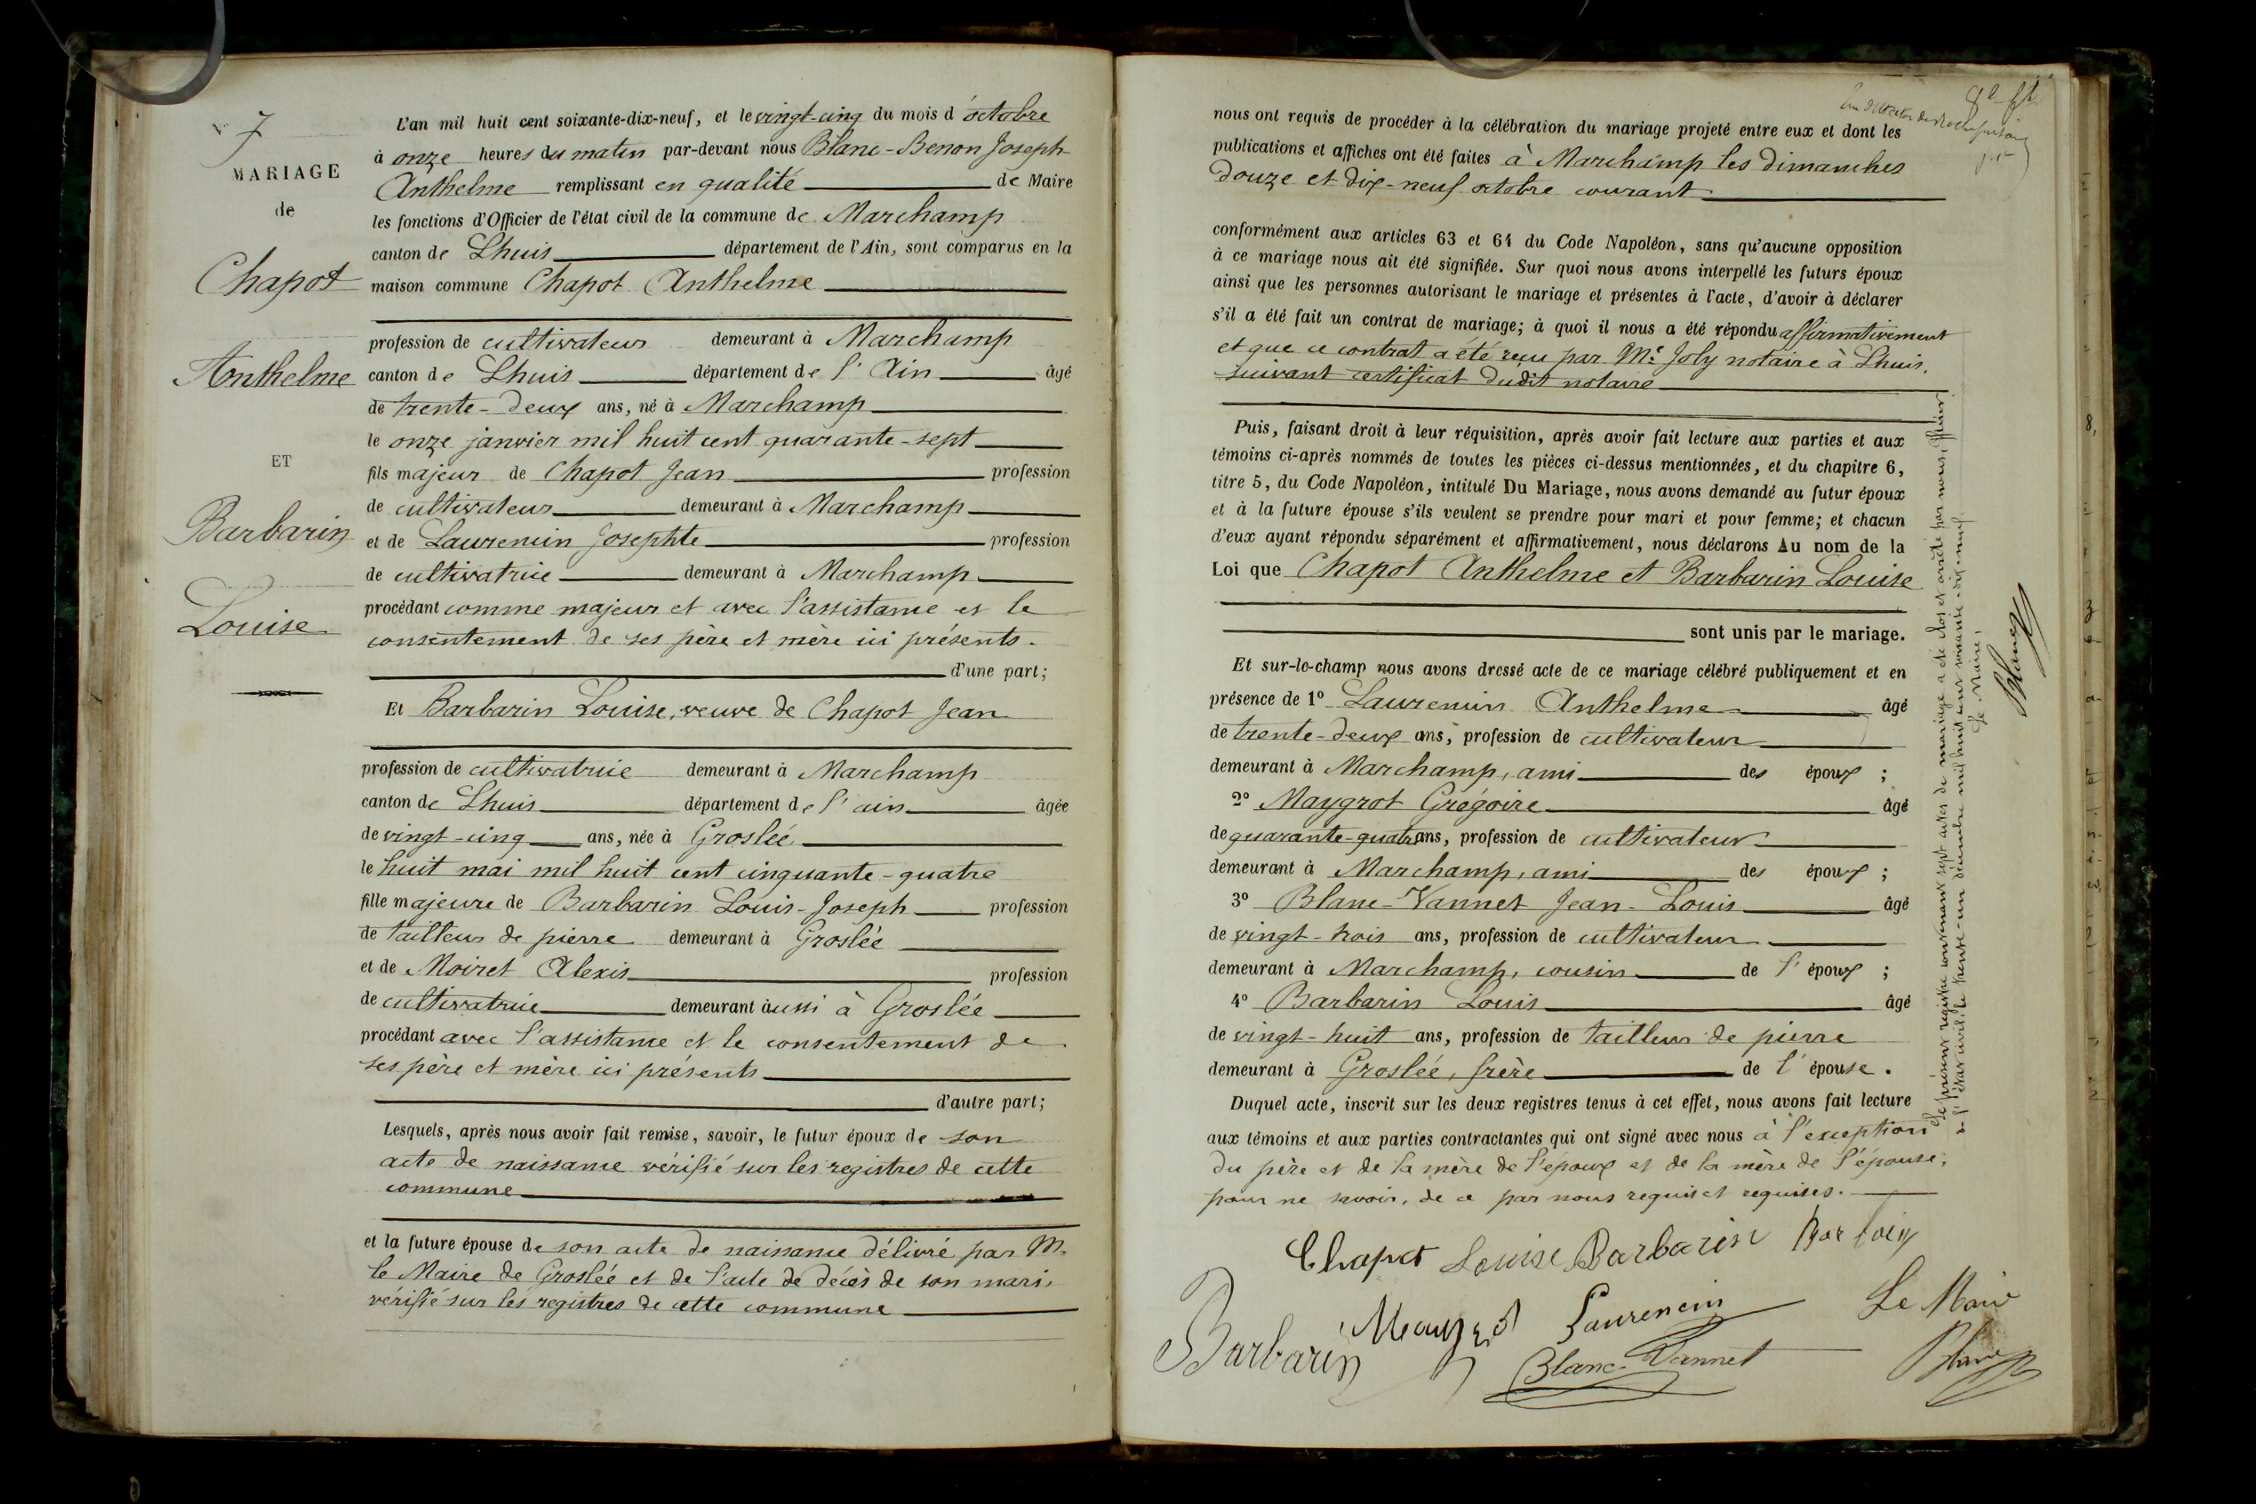 7
MARIAGE
de
Chapot
Anthelme
ET
Barbarin
Louise
L'an mil huit cent soixante-dix-neuf, et le vingt-cinq du mois d'octobre
à onze heures du matin par-devant nous Blanc-Benon Joseph
Anthelme remplissant en qualité de Maire
les fonctions d'Officier de l'état civil de la commune de Marchamp
canton de Lhuis département de l'Ain, sont comparus en la
maison commune Chapot Anthelme
profession de cultivateur demeurant à Marchamp
canton de Lhuis département de l'Ain âgé
de trente-deux ans, né à Marchamp
le onze janvier mil huit cent quarante-sept
fils majeur de Chapot Jean profession
de cultivateur demeurant à Marchamp
et de Laurencin Josephte profession
de cultivatrice demeurant à Marchamp
procédant comme majeur et avec l'assistance et le
consentement de ses père et mère ici présents.
d'une part;
Et Barbarin Louise, veuve de Chapot Jean
profession de cultivatrice demeurant à Marchamp
canton de Lhuis département de l'ain âgée
de vingt-cinq ans, née à Groslée
le huit mai mil huit cent cinquante-quatre
fille majeure de Barbarin Louis-Joseph profession
de tailleur de pierre demeurant à Groslée
et de Moiret Alexis profession
de cultivatrice demeurant aussi à Groslée
procédant avec l'assistance et le consentement de
ses père et mère ici présents
d'autre part;
Lesquels, après nous avoir fait remise, savoir, le futur époux de son
acte de naissance vérifié sur les registres de cette
commune
et la future épouse de son acte de naissance délivré par M.
le Maire de Groslée et de l'acte de décès de son mari,
vérifié sur les registres de cette commune
nous ont requis de procéder à la célébration du mariage projeté entre eux et dont les
publications et affiches ont été faites à Marchamp les dimanches
douze et dix-neuf octobre courant
conformément aux articles 63 et 64 du Code Napoléon, sans qu'aucune opposition
à ce mariage nous ait été signifiée. Sur quoi nous avons interpellé les futurs époux
ainsi que les personnes autorisant le mariage et présentes à l'acte, d'avoir à déclarer
s'il a été fait un contrat de mariage; à quoi il nous a été répondu affirmativement
et que ce contrat a été reçu par Me Joly notaire à Lhuis,
suivant certificat dudit notaire
Puis, faisant droit à leur réquisition, après avoir fait lecture aux parties et aux
témoins ci-après nommés de toutes les pièces ci-dessus mentionnées, et du chapitre 6,
titre 5, du Code Napoléon, intitulé Du Mariage, nous avons demandé au futur époux
et à la future épouse s'ils veulent se prendre pour mari et pour femme; et chacun
d'eux ayant répondu séparément et affirmativement, nous déclarons Au nom de la
Loi que Chapot Anthelme et Barbarin Louise
sont unis par le mariage.
Et sur-le-champ nous avons dressé acte de ce mariage célébré publiquement et en
présence de 1° Laurencin Anthelme âgé
de trente-deux ans, profession de cultivateur
demeurant à Marchamp, ami des époux ;
2° Maygrot Grégoire âgé
de quarante-quatre ans, profession de cultivateur
demeurant à Marchamp, ami des époux ;
3° Blanc-Vannet Jean-Louis âgé
de vingt-trois ans, profession de cultivateur
demeurant à Marchamp, cousin de l'époux ;
4° Barbarin Louis âgé
de vingt-huit ans, profession de tailleur de pierre
demeurant à Groslée, frère de l'épouse.
Duquel acte, inscrit sur les deux registres tenus à cet effet, nous avons fait lecture
aux témoins et aux parties contractantes qui ont signé avec nous à l'exception
du père et de la mère de l'époux et de la mère de l'épouse,
pour ne savoir, de ce par nous requis et requises.
Chapot Louise Barbarin Barbarin
Barbarin Maygrot Laurencin Le Maire
Blanc-Vannet Blanc
Le présent registre contenant sept actes de mariage a été clos et arrêté par nous, officier
de l'état civil, le trente-un décembre mil huit cent soixante-dix-neuf
Le Maire,
Blanc